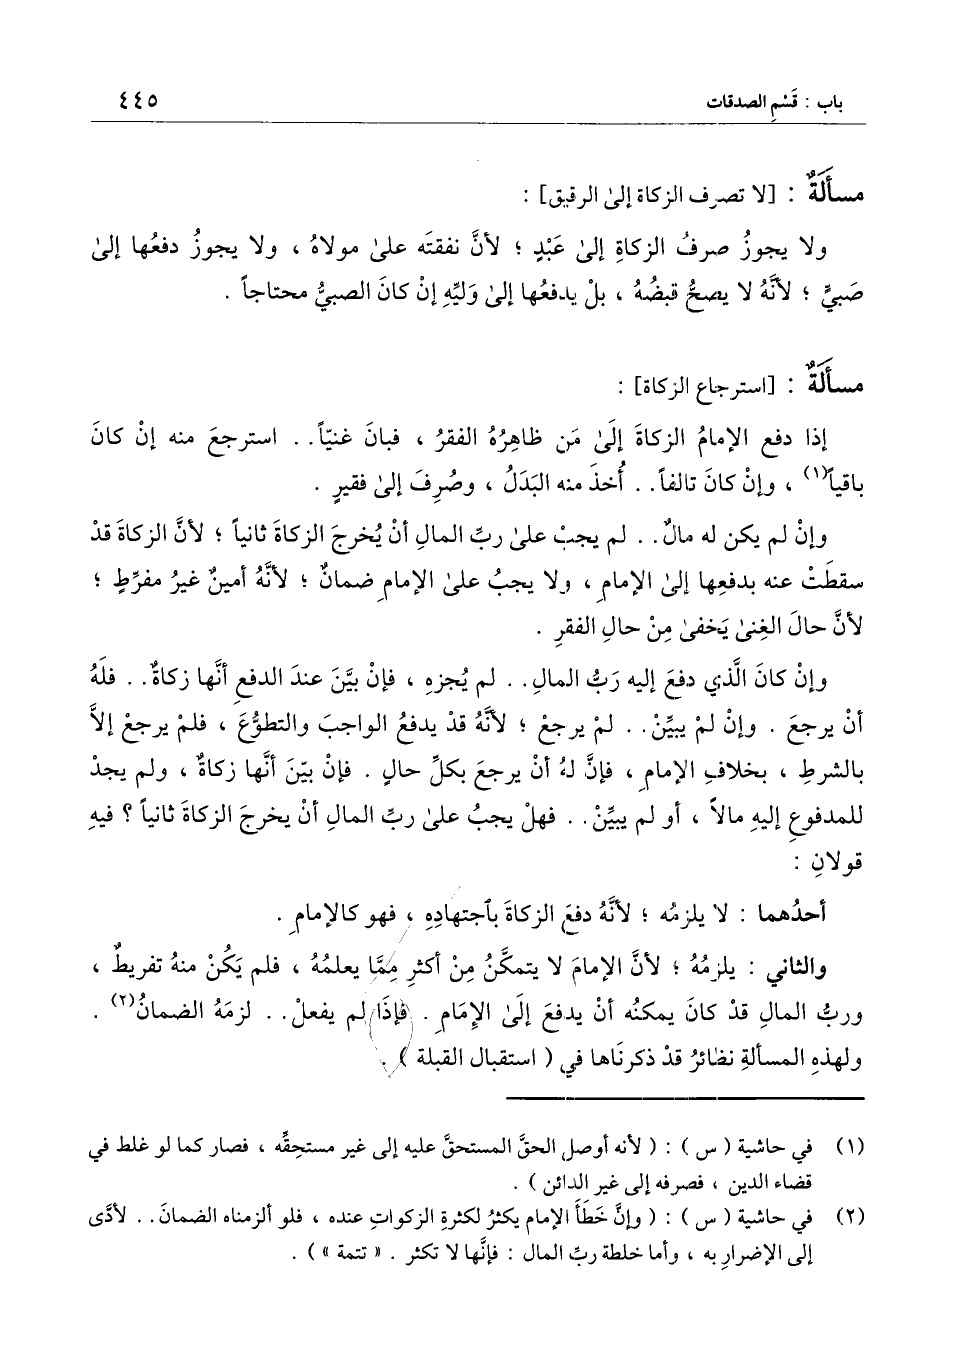 باب : قَسْمِ الصدقات ٤٤٥
مسأَلَةٌ : [لا تصرف الزكاة إلىٰ الرقيق] :
ولا يجوزُ صرفُ الزكاةِ إلىٰ عَبْدٍ ؛ لأنَّ نفقتَه علىٰ مولاهُ ، ولا يجوزُ دفعُها إلىٰ
صَبيٍّ ؛ لأنَّهُ لا يصحُّ قبضُهُ ، بلْ يدفعُها إلىٰ وَليِّهِ إنْ كانَ الصبيُّ محتاجاً .
مسأَلَةٌ : [استرجاع الزكاة] :
إذا دفع الإمامُ الزكاةَ إلَىٰ مَن ظاهِرُهُ الفقرُ ، فبانَ غنيّاً. . استرجعَ منه إنْ كانَ
باقياً(١) ، وإنْ كانَ تالفاً. . أُخذَ منه البَدَلُ ، وصُرِفَ إلىٰ فقيرٍ .
وإنْ لم يكن له مالٌ. . لم يجبْ علىٰ ربِّ المالِ أنْ يُخرجَ الزكاةَ ثانياً ؛ لأنَّ الزكاةَ قدْ
سقطَتْ عنه بدفعِها إلىٰ الإمامِ ، ولا يجبُ علىٰ الإمامِ ضمانٌ ؛ لأنَّهُ أمينٌ غيرُ مفرِّطٍ ؛
لأنَّ حالَ الغِنىٰ يَخفىٰ مِنْ حالِ الفقرِ .
وإنْ كانَ الَّذي دفعَ إليه رَبُّ المالِ. . لم يُجزهِ ، فإنْ بيَّنَ عندَ الدفعِ أنَّها زكاةٌ. . فلَهُ
أنْ يرجعَ . وإنْ لمْ يبيِّنْ. . لمْ يرجعْ ؛ لأنَّهُ قدْ يدفعُ الواجبَ والتطوُّعَ ، فلمْ يرجعْ إلاَّ
بالشرطِ ، بخلافِ الإمامِ ، فإنَّ لهُ أنْ يرجعَ بكلِّ حالٍ . فإنْ بيّنَ أنَّها زكاةٌ ، ولم يجدْ
للمدفوعِ إليهِ مالاً ، أو لم يبيِّنْ. . فهلْ يجبُ علىٰ ربِّ المالِ أنْ يخرجَ الزكاةَ ثانياً ؟ فيهِ
قولانِ :
أحدُهما : لا يلزمُه ؛ لأنَّهُ دفعَ الزكاةَ بٱجتهادِهِ ، فهو كالإمامِ .
والثاني : يلزمُهُ ؛ لأنَّ الإمامَ لا يتمكَّنُ مِنْ أكثرِ مِمَّا يعلمُهُ ، فلم يَكُنْ منهُ تفريطٌ ،
وربُّ المالِ قدْ كانَ يمكنُه أنْ يدفعَ إلَىٰ الإمَامِ . فإذَا لم يفعلْ. . لزمَهُ الضمانُ(٢) .
ولهذهِ المسألةِ نظائرُ قدْ ذكرنَاها في ( استقبال القبلة ) .
(١) في حاشية ( س ) : ( لأنه أوصل الحقَّ المستحقَّ عليه إلى غير مستحِقِّه ، فصار كما لو غلط في
قضاء الدين ، فصرفه إلى غير الدائن ) .
(٢) في حاشية ( س ) : ( وإنَّ خَطَأَ الإمام يكثرُ لكثرةِ الزكواتِ عنده ، فلو ألزمناه الضمانَ. . لأدَّى
إلى الإضرارِ به ، وأما خلطة ربِّ المال : فإنَّها لا تكثر . « تتمة » ) .